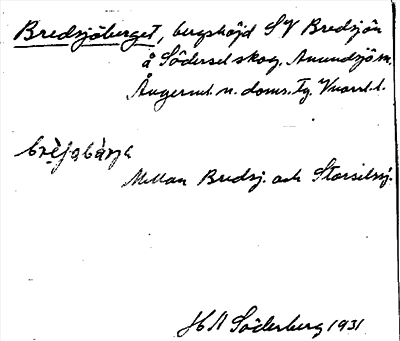 Bredsjöberget, bergshöjd S V Bredsjön
å Södersel skog, Anundsjö sn.
Ångerml. n. doms. Tg. Vnorrl. l.
Mellan Bredsj. och Storselssj.
H M Söderberg 1931